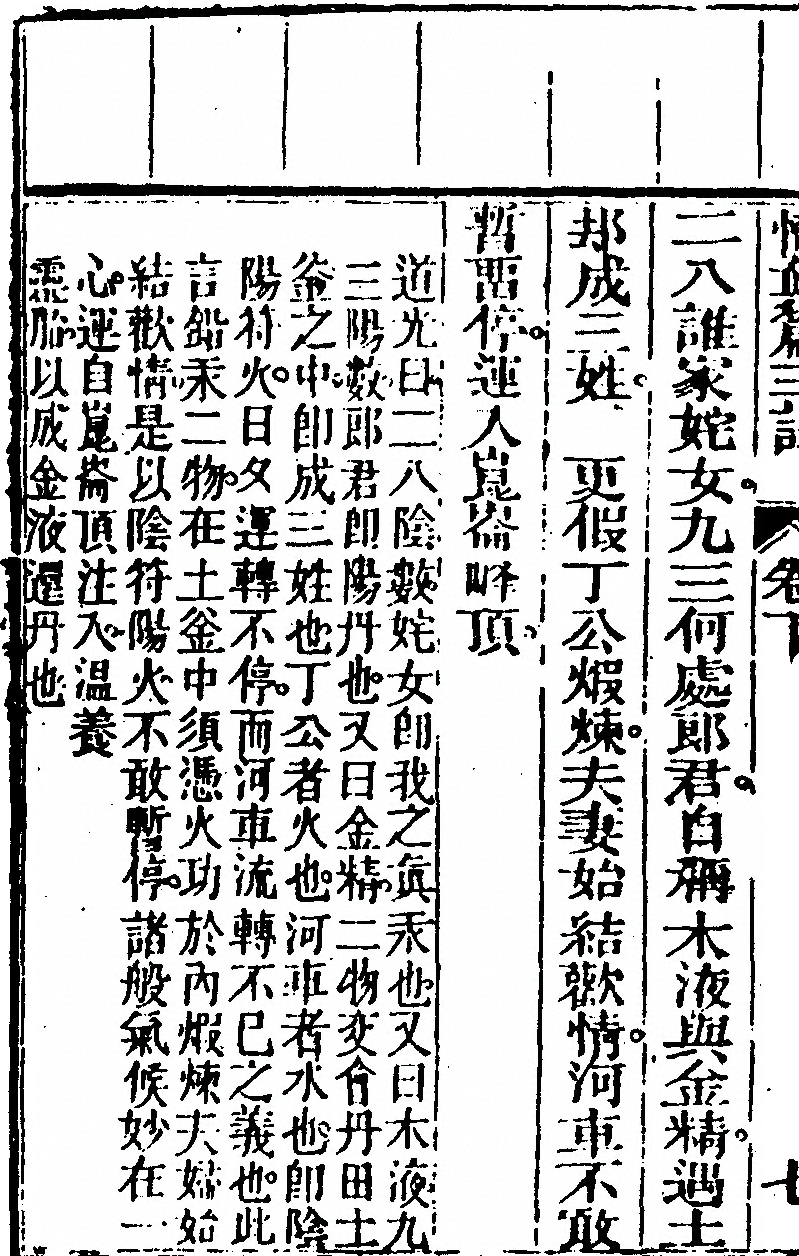 悟真篇三註 卷下 七
二八誰家姹女。九三何處郎君。自稱木液與金精。遇土
却成三姓。 更假丁公煆煉。夫妻始結歡情。河車不敢
暫畱停。運入崑崙峰頂。
道光曰二八陰數姹女卽我之眞汞也又曰木液九
三陽數郎君卽陽丹也又曰金精二物交會丹田土
釜之中卽成三姓也丁公者火也河車者水也卽陰
陽符火。日夕運轉不停。而河車流轉不已之義也。此
言鉛汞二物。在土釜中須憑火功於內煆煉夫婦始
結歡情是以陰符陽火不敢暫停。諸般氣候妙在一
心。運自崑崙頂注入。温養
靈胎以成金液還丹也